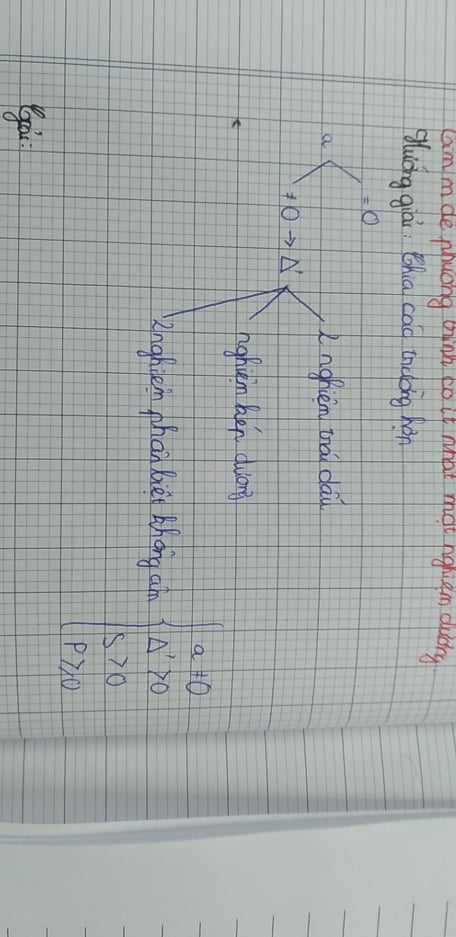 Tìm m để phương trình có ít nhất một nghiệm dương.
Hướng giải: Chia các trường hợp
= 0
a
≠ 0 → Δ'
2 nghiệm trái dấu
nghiệm kép dương
2 nghiệm phân biệt không âm
a ≠ 0
Δ' > 0
S > 0
P ≥ 0
Giải: